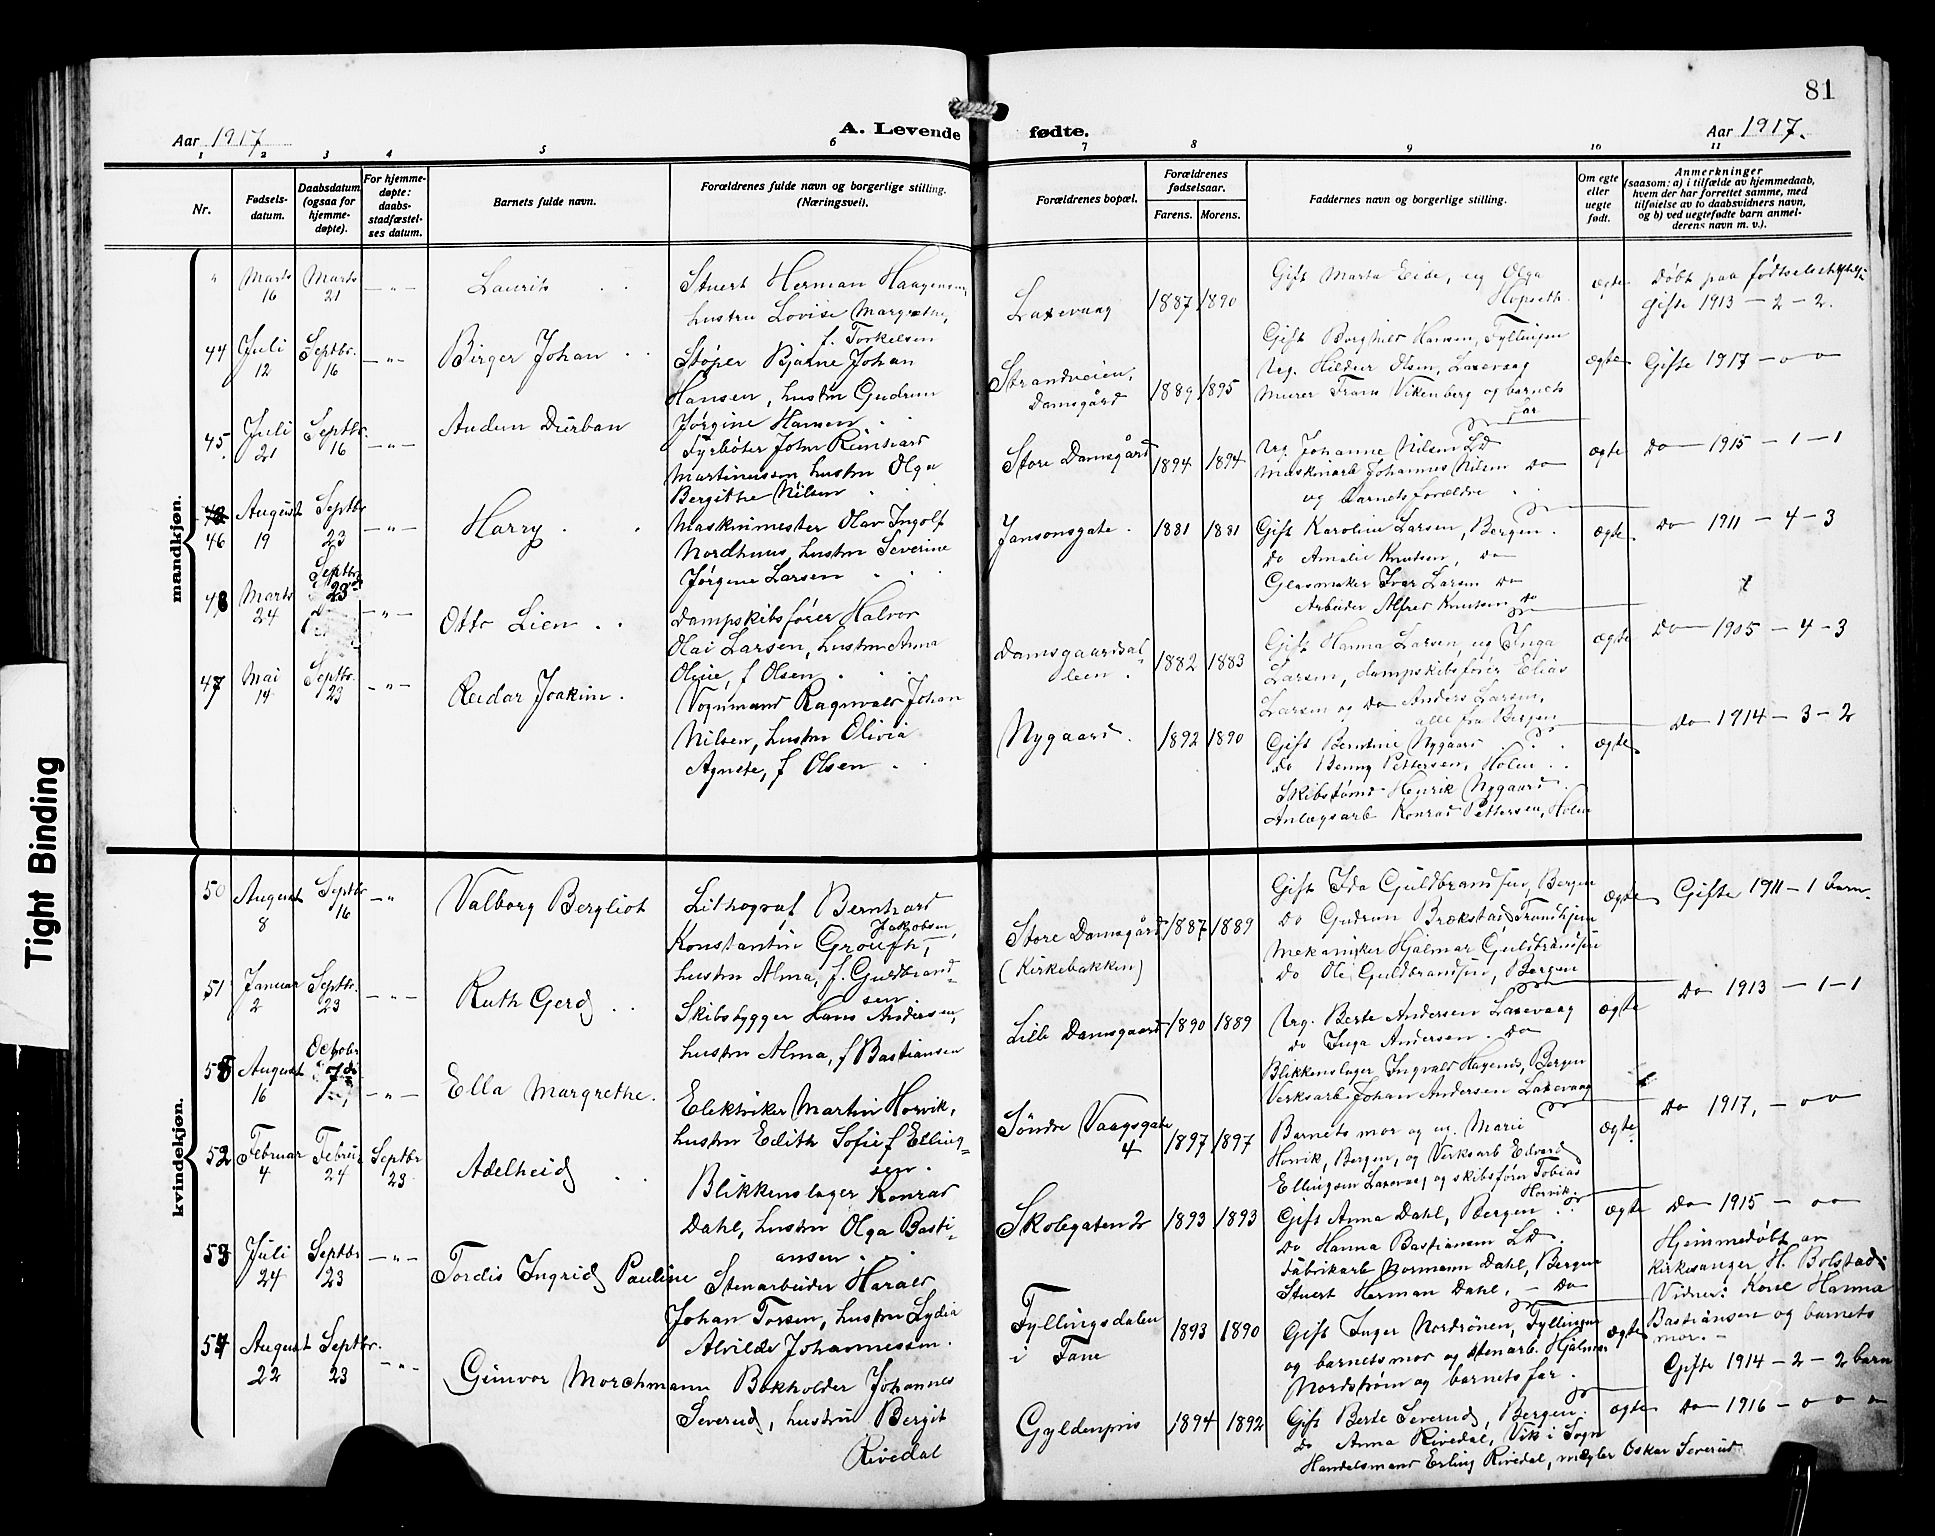 81
Aar 1917
A. Levende fødte.
Aar 1917.
1 2 3 4 5 6 7 8 9 10 11
Nr.
Fødsels-
datum.
Daabsdatum
(ogsaa for
hjemme-
døpte).
For hjemme-
døpte:
daabs-
stadfæstel-
ses datum.
Barnets fulde navn.
Forældrenes fulde navn og borgerlige stilling.
(Næringsvei).
Forældrenes bopæl.
Forældrenes
fødselsaar.
Farens. Morens.
Faddernes navn og borgerlige stilling.
Om egte
eller
uegte
født.
Anmerkninger
(saasom: a) i tilfælde av hjemmedaab,
hvem der har forrettet samme, med
tilføielse av to daabsvidners navn,
og b) ved uegtefødte barn anmel-
derens navn m. v.).
mandkjøn.
" Marts 16 Marts 21 — " — Laurits
Stuert Herman Haagensen,
hustru Lovise Margrethe,
f. Torkelsen
Laxevaag 1887 1890
Gift Marta Eide, ug Olga
Hopseth
ægte
Døbt paa fødselsstiftelse
Gifte 1913 — 2 — 2.
44 Juli 12 Septbr. 16 — " — Birger Johan
Støper Bjarne Johan
Hansen, hustru Gudrun
Jørgine Hansen
Strandveien,
Damsgård 1889 1895
Gift Borghild Hansen, Fyllingen
Ug. Hildur Olsen, Laxevaag
Murer Frans Vikenberg og barnets
far
ægte
Gifte 1917 — o — o
45. Juli 21 Septbr. 16 — " — Audun Durban
Fyrbøter John Reinhard
Martinussen, hustru Olga
Bergithe Nilsen
Store Damsgård 1894 1894
Ug. Johanne Nilsen Ld
Maskinarb Johannes Nilsen do
og barnets forældre
ægte
Do — 1915 — 1 — 1
46 August 19 Septbr 23 — " — Harry
Maskinmester Olav Ingolf
Nordhuus, hustru Severine
Jørgine Larsen
Jansonsgate 1881 1881
Gift Karoline Larsen, Bergen
do Amalie Knutsen, do
Glasmaker Ivar Larsen do
Arbeider Alfred Knutsen do
ægte
Do 1911 — 4 — 3
48 Marts 24 Septbr 23 — " — Otto Lien
Dampskibsfører Halvor
Olai Larsen, hustru Anna
Oline, f Olsen
Damsgaardsal-
leen 1882 1883
Gift Hanna Larsen, ug Inga
Larsen, dampskibsfører Elias
Larsen og do Anders Larsen,
alle fra Bergen
ægte
Do — 1905 — 4 — 3
47 Mai 14 Septbr. 23 — " — Reidar Joakim
Vognmand Ragnvald Johan
Nilsen, hustru Olivia
Agnete, f Olsen
Nygaard 1892 1890
Gift Berntine Nygaard
do Benny Pettersen, Holen
Skibstømd Henrik Nygaard
Anlægsarb Konrad Pettersen, Holen
ægte
Do 1914 — 3 — 2
kvindekjøn.
50 August 8 Septbr 16 — " Valborg Bergliot
Lithograf Bernhard
Konstantin Jakobsen,
hustru Alma, f. Guldbrand-
sen
Store Damsgård
(Kirkebakken) 1887 1889
Gift Ida Guldbrandsen, Bergen
do Gudrun Brækstad Trondhjem
Mekaniker Hjalmar Guldbrandsen
Do Ole Guldbrandsen, Bergen
ægte
Gifte 1911 — 1 barn.
51 Januar 2 Septbr. 23 — " — Ruth Gerd
Skibsbygger Hans Andersen,
hustru Alma, f Bastiansen
Lille Damsgaard 1890 1889
Ug. Berte Andersen Laxevaag
do Inga Andersen do
Blikkenslager Ingvald Hagenes, Bergen
Verksarb Johan Andersen Laxevaag
ægte
Do 1913 — 1 — 1
58 August 16 Octobr 7de — " — Ella Margrethe.
Elektriker Martin Horvik,
hustru Edith Sofie f Elling-
sen.
Søndre Vaagsgate
4 1897 1897
Barnets mor og ug. Marie
Horvik, Bergen, og Verksarb Edvard
Ellingsen Laxevaag og skibsfører Tobias
Horvik.
ægte.
Do 1917, — o — o
52 Februar 4 Februar 24 Septbr 23 Adelheid
Blikkenslager Konrad
Dahl, hustru Olga Basti-
ansen
Skolegaten 2 1893 1893
Gift Anna Dahl, Bergen
Do Hanna Bastiansen Ld
Fabrikarb Normann Dahl, Bergen
Stuert Herman Dahl, — Do
ægte
Do 1915 — o — o
Hjemmedøbt av
kirkesanger H. Bolstad:
Vidner: Kone Hanna
Bastiansen og barnets
mor. —
53 Juli 24 Septbr 23 — " — Tordis Ingrid Pauline
Stenarbeider Harald
Johan Torsen, hustru Lydia
Alvilde Johannessen.
Fyllingsdalen
i Fane 1893 1890
Gift Inger Nordrönen, Fyllingen
og barnets mor og stenarb. Hjalmar
Nordstrøm og barnets far.
ægte
Gifte 1914 — 2 — 2 barn
54 August 22 Septbr. 23 — " — Gunvor Morchmann
Bokholder Johannes
Severud, hustru Bergit
Rivedal
Gyldenpris 1894 1892
Gift Berte Severud, Bergen.
Do Anna Rivedal, Vik i Sogn
Handelsmand Erling Rivedal, mægler Oskar Severud
ægte
Do 1916 — o — o — o
Tight Binding